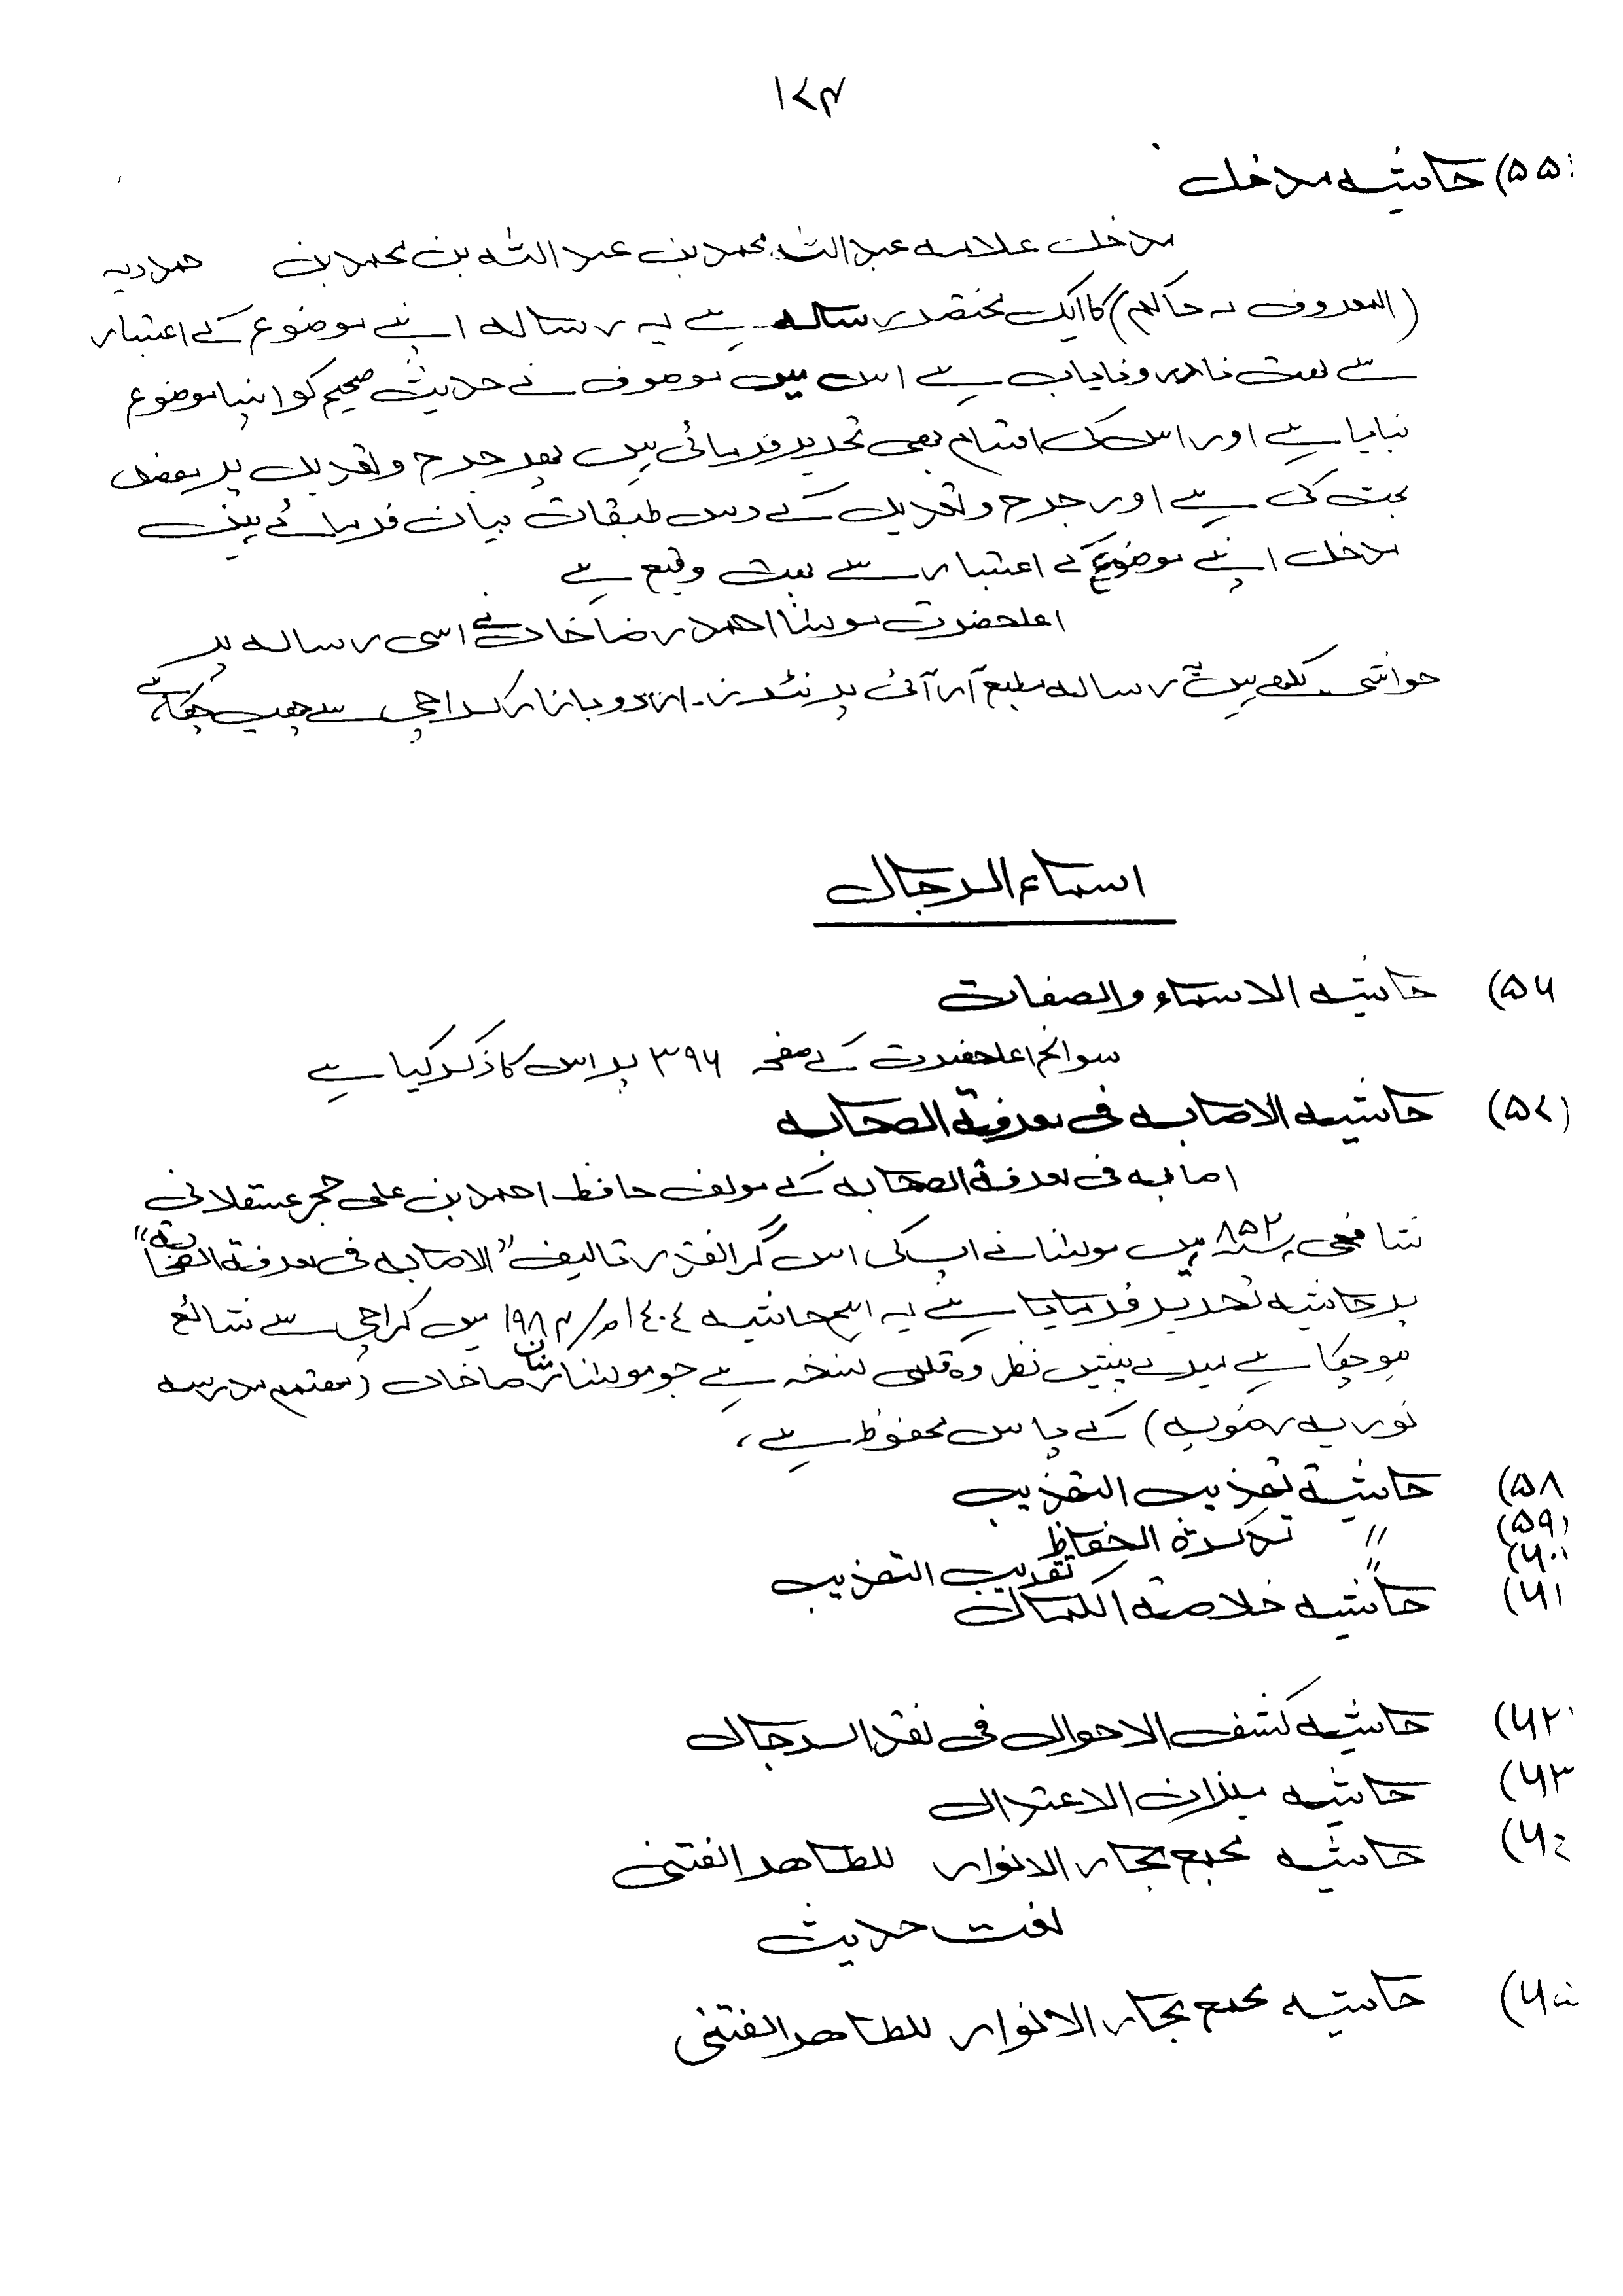 ۱۷۴
۵۵) حاشیہ مدخل
مدخل علامہ عبداللہ محمد بن عبداللہ بن محمد بن حمدویہ
(المعروف بہ حاکم) کا ایک مختصر رسالہ ہے یہ رسالہ اپنے موضوع کے اعتبار
سے بہت نادر و نایاب ہے اس میں موصوف نے حدیث صحیح کو اپنا موضوع
بنایا ہے اور اس کی اقسام بھی تحریر فرمائی ہیں پھر جرح و تعدیل پر مفصل
بحث کی ہے اور جرح و تعدیل کے دس طبقات بیان فرمائے ہیں
مدخل اپنے موضوع کے اعتبار سے بہت وقیع ہے
اعلحضرت مولانا احمد رضا خاں نے اسی رسالہ پر
حواشی لکھے ہیں یہ رسالہ مطبع آر آئی پرنٹرز۔ اردو بازار کراچی سے چھپ چکا ہے،
اسماء الرجال
۵۶) حاشیہ الاسماء والصفات
سوانح اعلحضرت کے صفحہ ۳۹۶ پر اس کا ذکر کیا ہے
(۵۷) حاشیہ الاصابہ فی معرفۃ الصحابہ
اصابہ فی معرفۃ الصحابہ کے مولف حافظ احمد بن علی حجر عسقلانی
شافعی ۸۵۲ھ ہیں مولانا نے اپ کی اس گرانقدر تالیف "الاصابہ فی معرفۃ الصحابۃ"
پر حاشیہ تحریر فرمایا ہے یہ اہم حاشیہ ۱٤۰٤ھ/۱۹۸۴ میں کراچی سے شائع
ہو چکا ہے میرے پیش نظر وہ قلمی نسخہ ہے جو مولانا رضا خاں (مہتمم مدرسہ
نوریہ رضویہ) کے پاس محفوظ ہے،
۵۸) حاشیۃ تہذیب التہذیب
(۵۹) // تذکرۃ الحفاظ
(۶۰) // تقریب التہذیب
۶۱) حاشیہ خلاصۃ الکمال
۶۲) حاشیہ کشف الاحوال فی نقد الرجال
۶۳) حاشیہ میزان الاعتدال
۶٤) حاشیہ مجمع بحار الانوار للطاہر الفتنی
لغت حدیث
۶۵) حاشیہ مجمع بحار الانوار للطاہر الفتنی